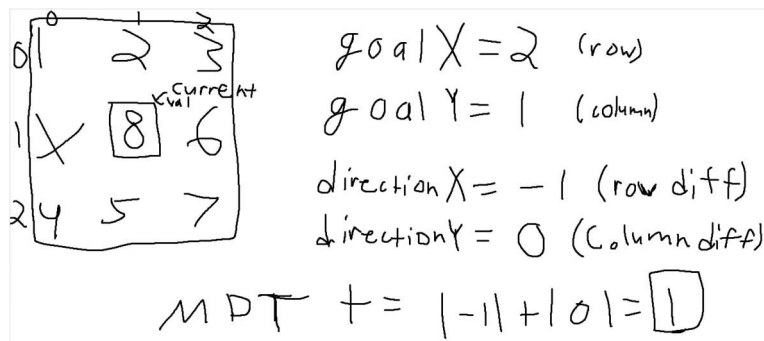 0 1 2
0 1 2 3
current
val
1 X 8 6
2 4 5 7
goalX = 2 (row)
goalY = 1 (column)
directionX = -1 (row diff)
directionY = 0 (Column diff)
MDT += |-1| + |0| = 1